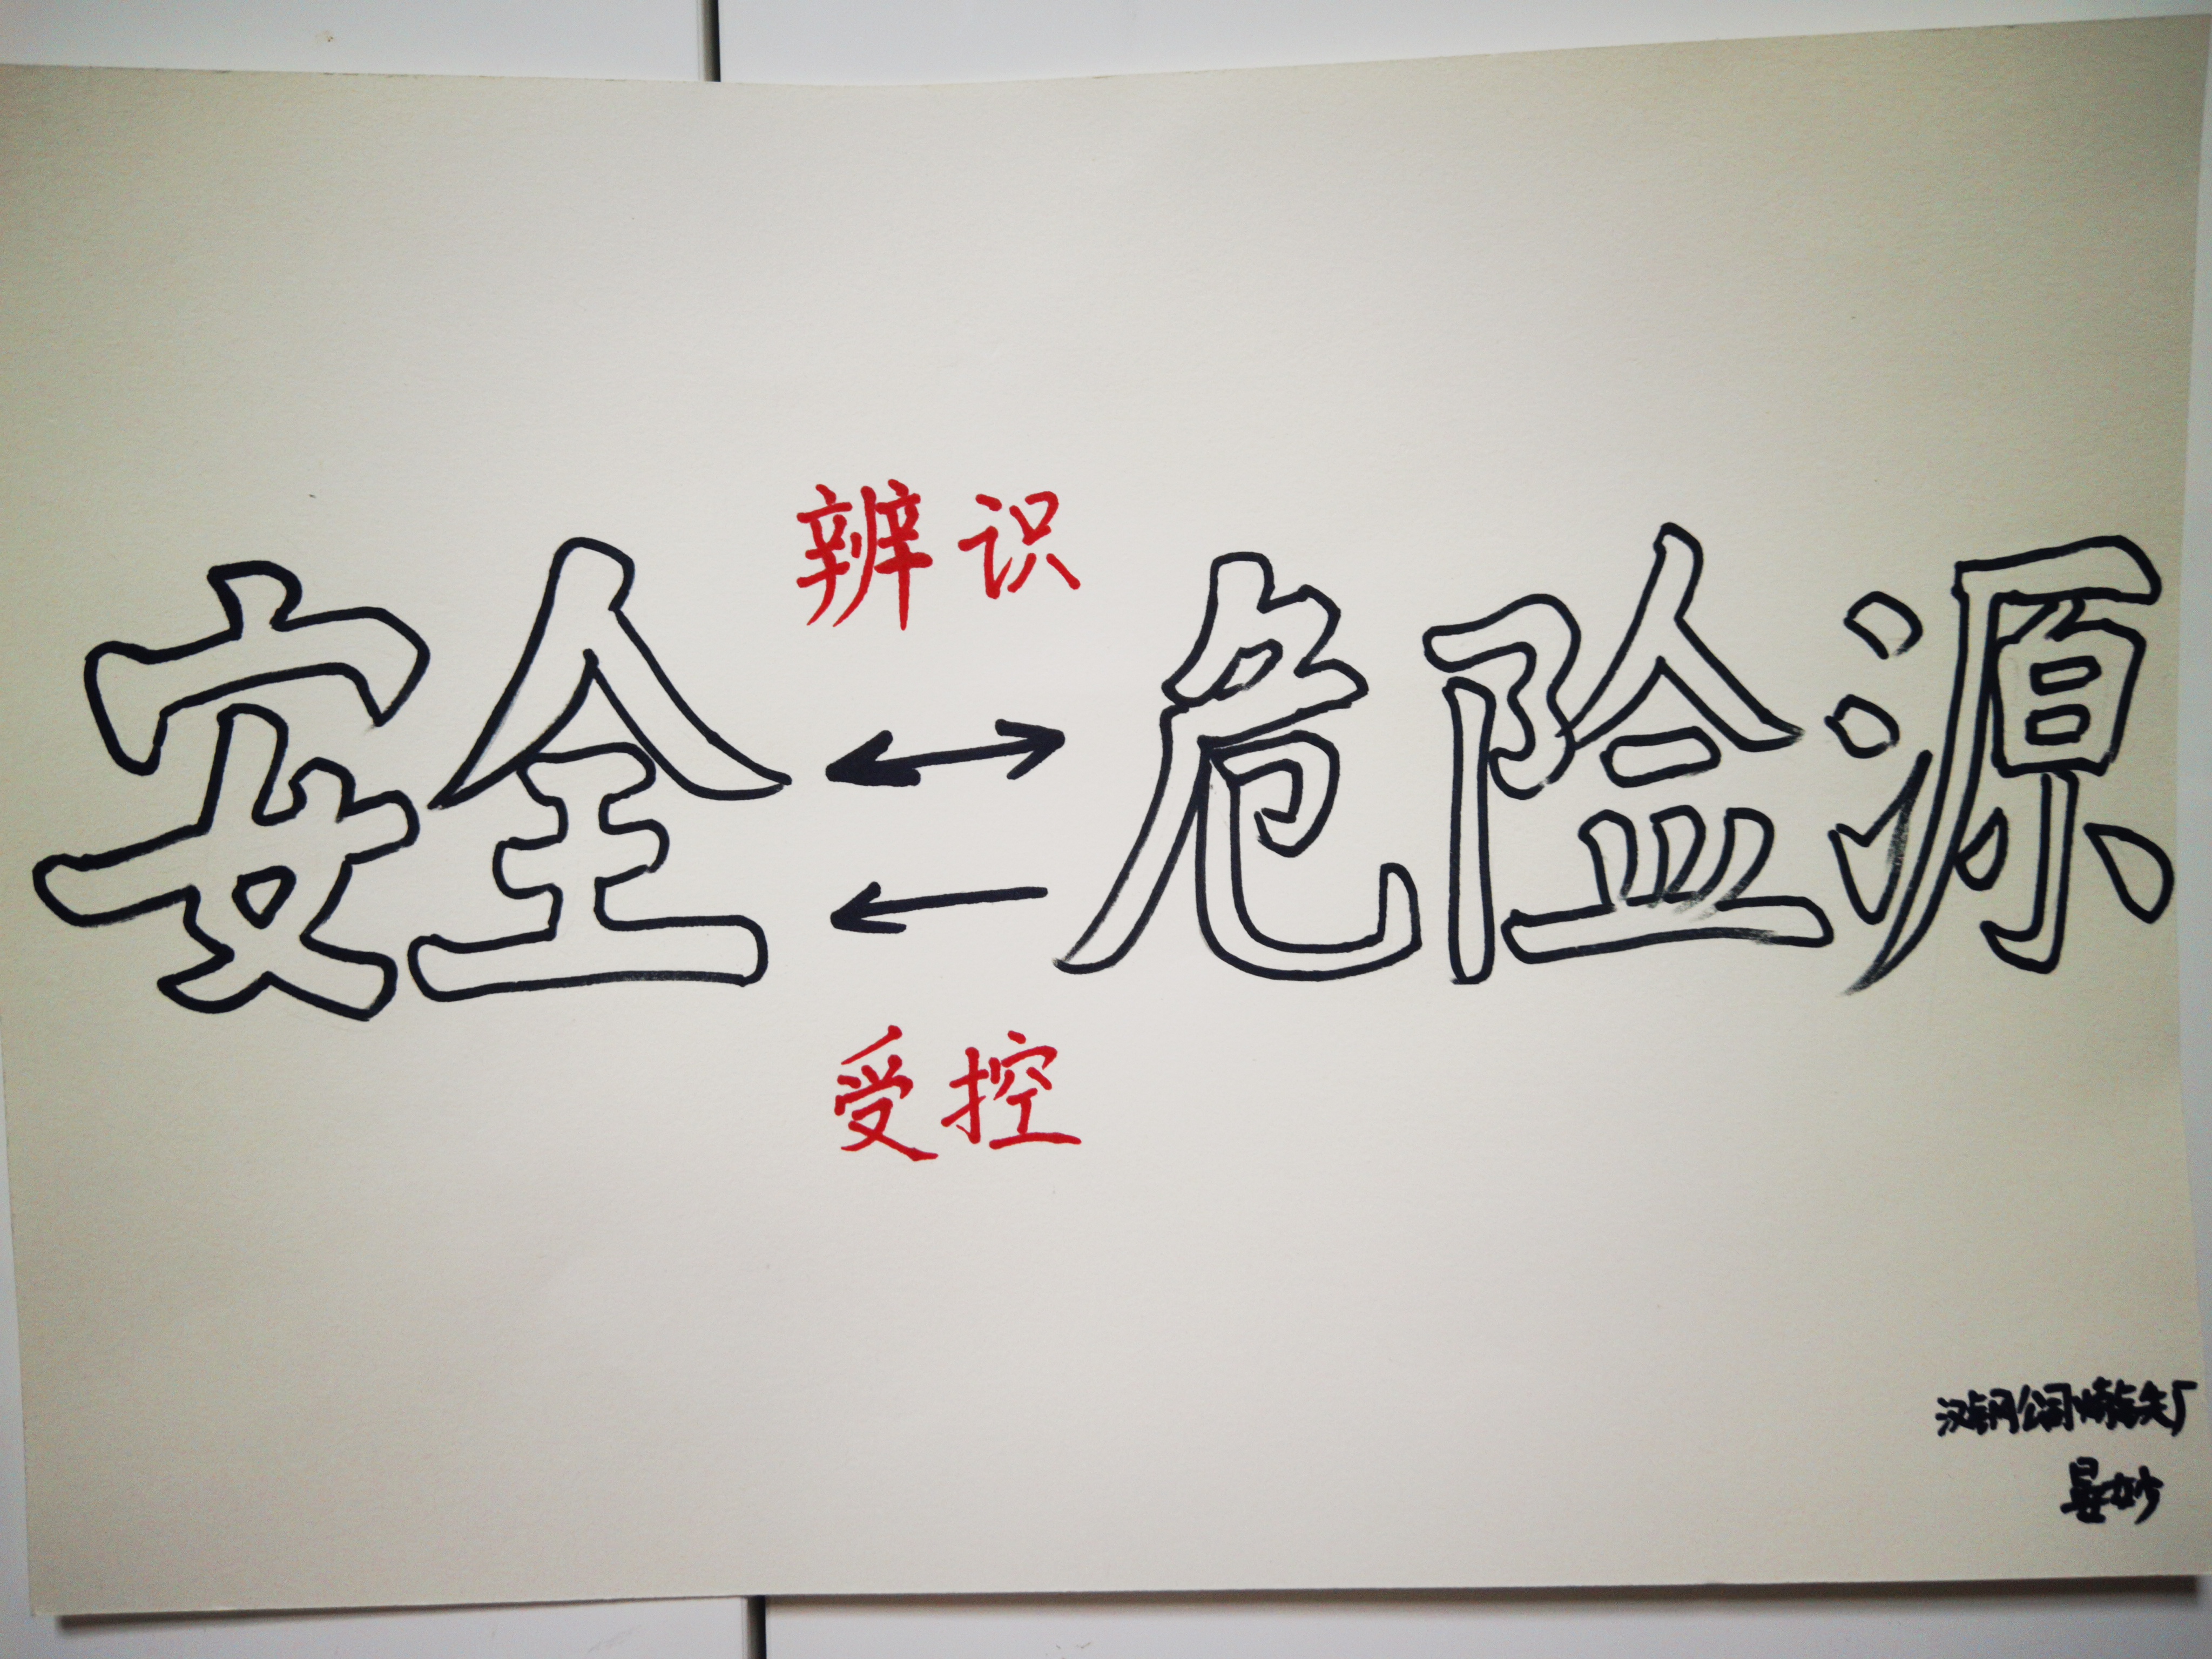 辨识
安全 ←→ 危险源
←
受控
汉钢公司烧结厂
晏妙